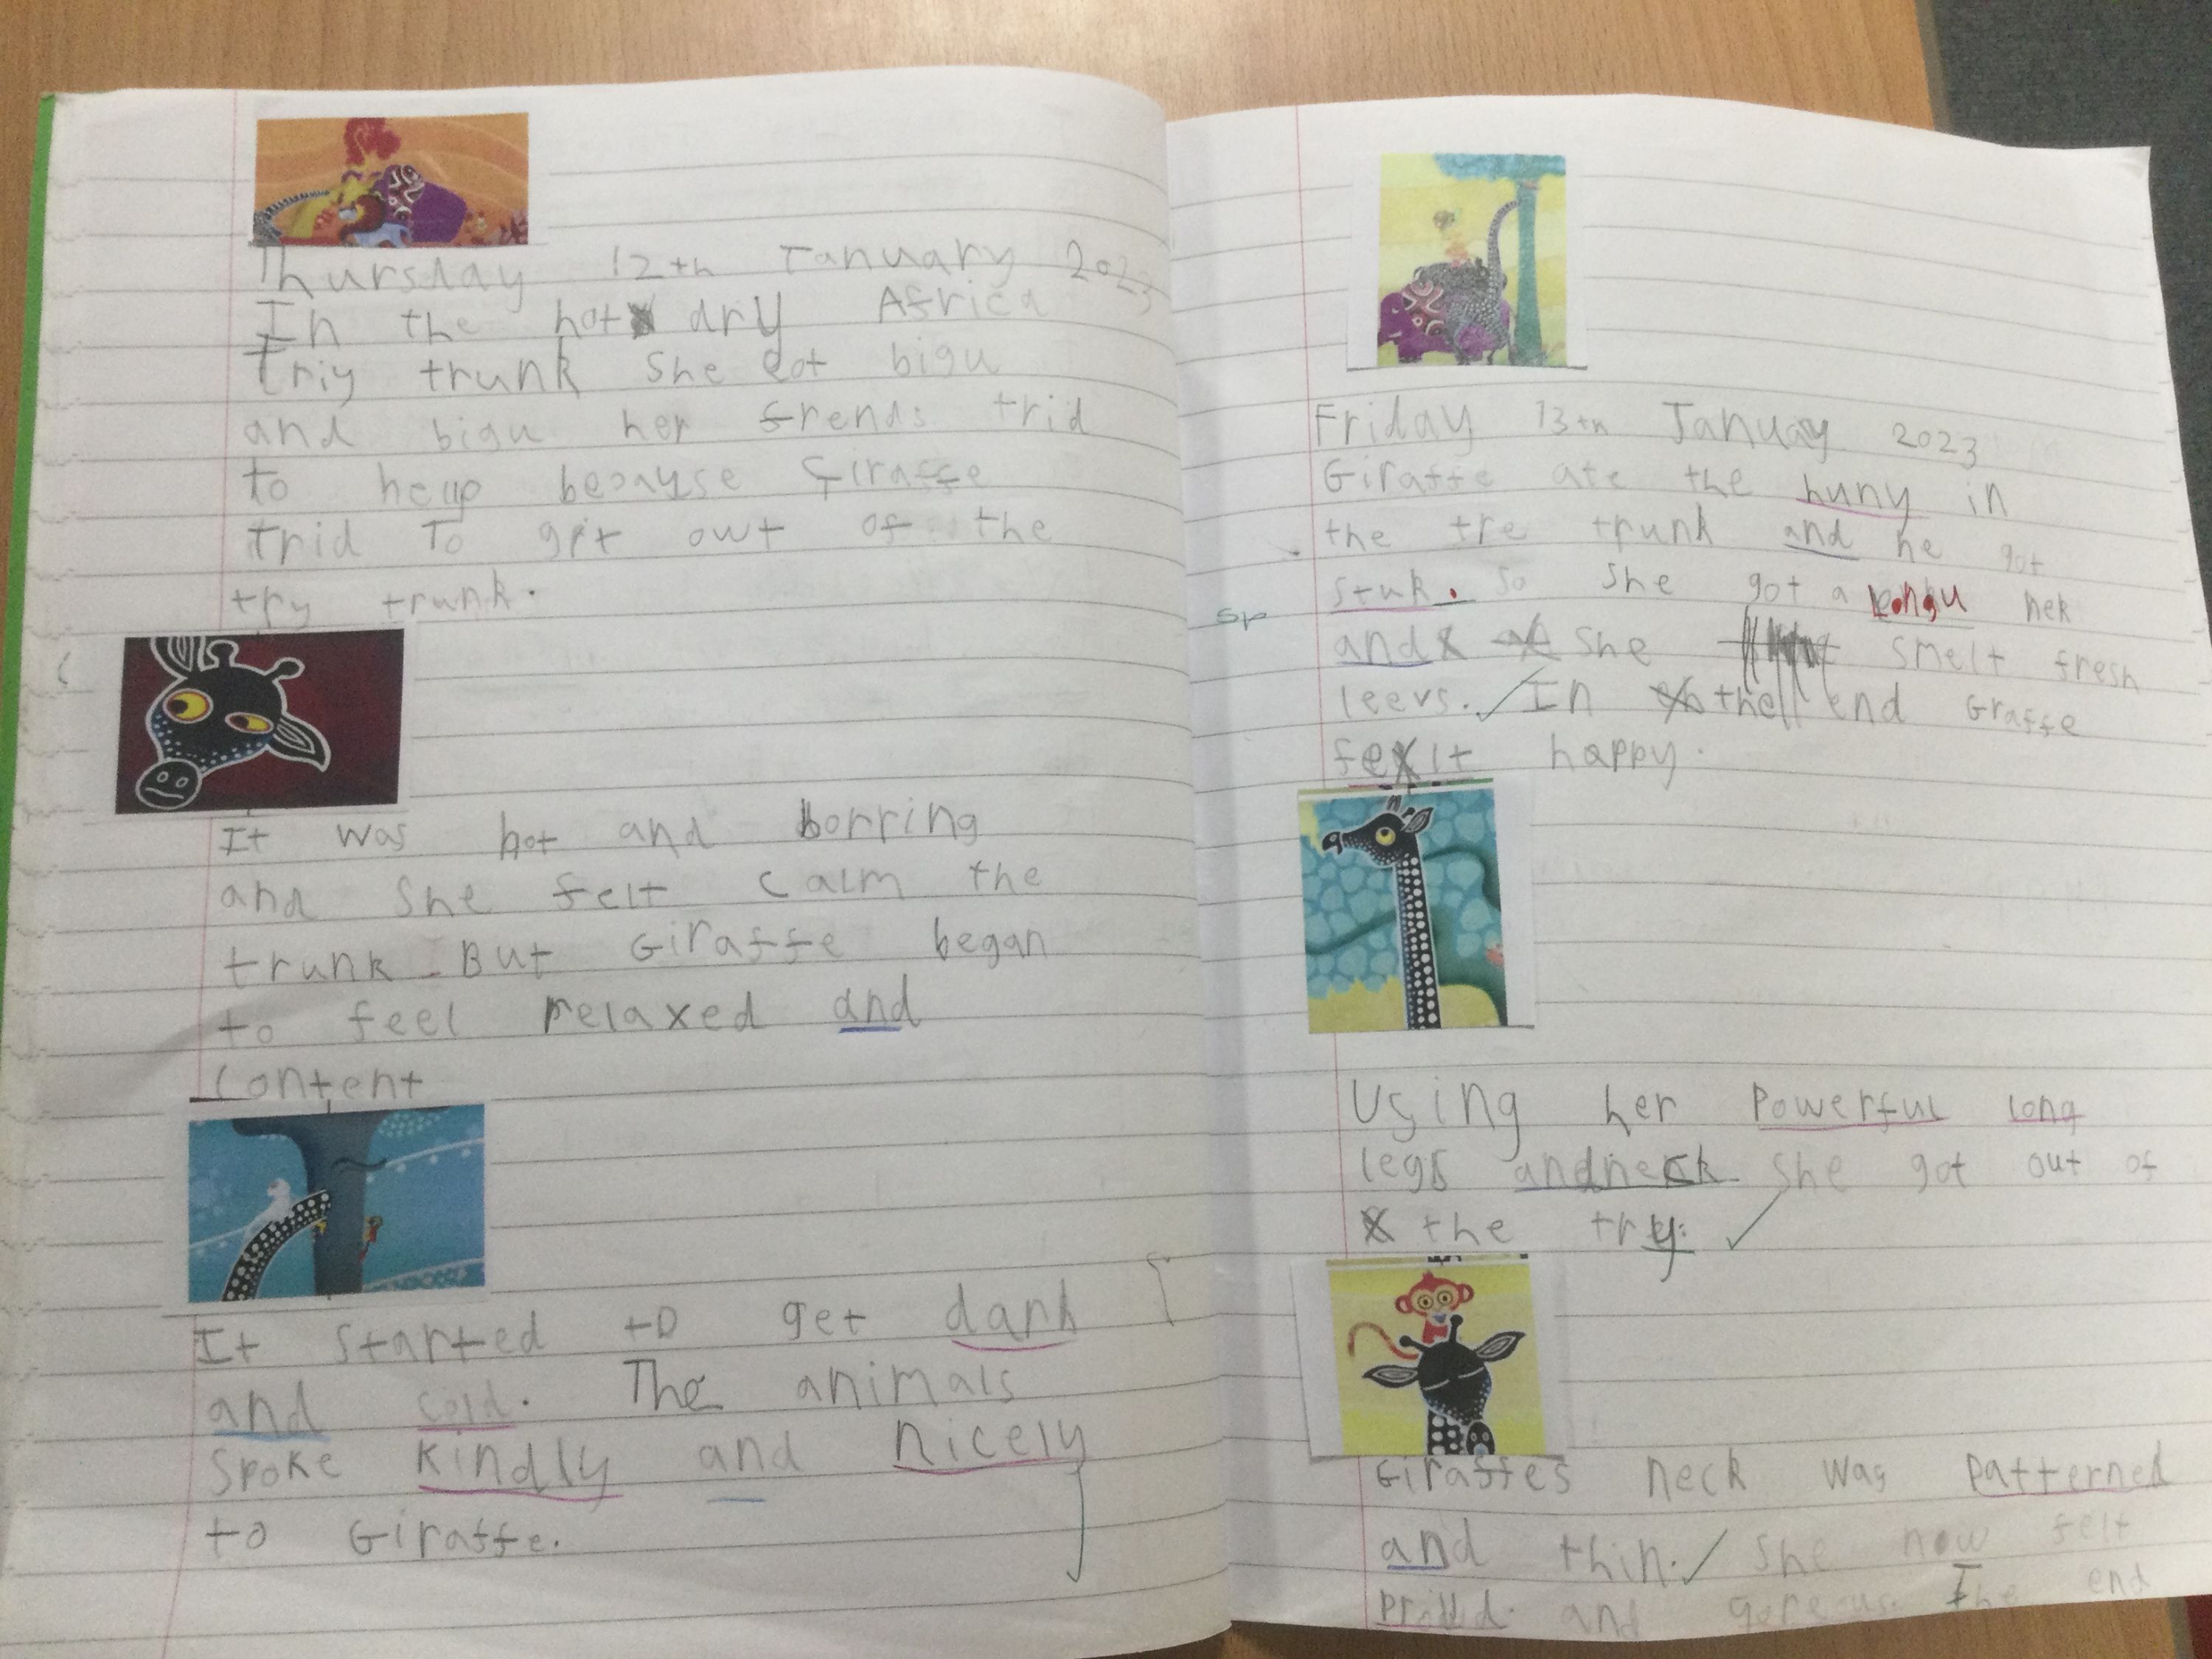 Thursday 12th January 2023
In the hot dry Africa
triy trunk she got bigu
and bigu her frends trid
to heup because Giraffe
trid To get out of the
try trunk.
It was hot and borring
and she felt calm the
trunk. But Giraffe began
to feel relaxed and
content
It started to get dark
and cold. The animals
spoke kindly and nicely
to Giraffe.
Friday 13th January 2023
Giraffe ate the huny in
the tre trunk and he got
stuk. so she got a nek
sp
and she smelt fresh
leevs. In the end Graffe
felt happy.
Using her powerful long
legs and neck she got out of
the try.
Giraffes neck was patterned
and thin. she now felt
and The end